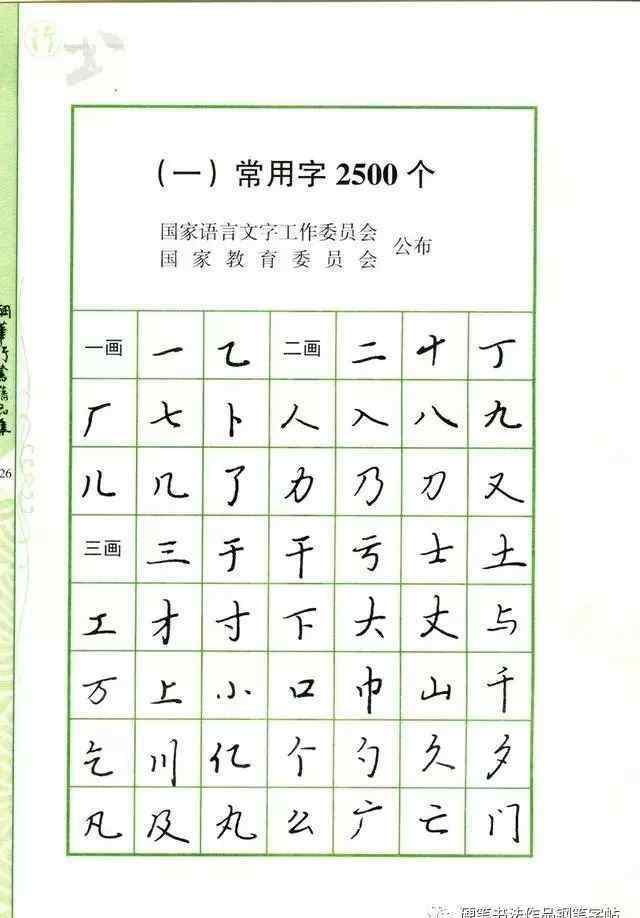 行书
（一）常用字 2500 个
国家语言文字工作委员会
国家教育委员会
公布
一画 一 乙 二画 二 十 丁
厂 七 卜 人 入 八 九
儿 几 了 力 乃 刀 又
三画 三 于 干 亏 士 土
工 才 寸 下 大 丈 与
万 上 小 口 巾 山 千
乞 川 亿 个 勺 久 夕
凡 及 丸 么 广 亡 门
26
硬笔书法作品钢笔字帖